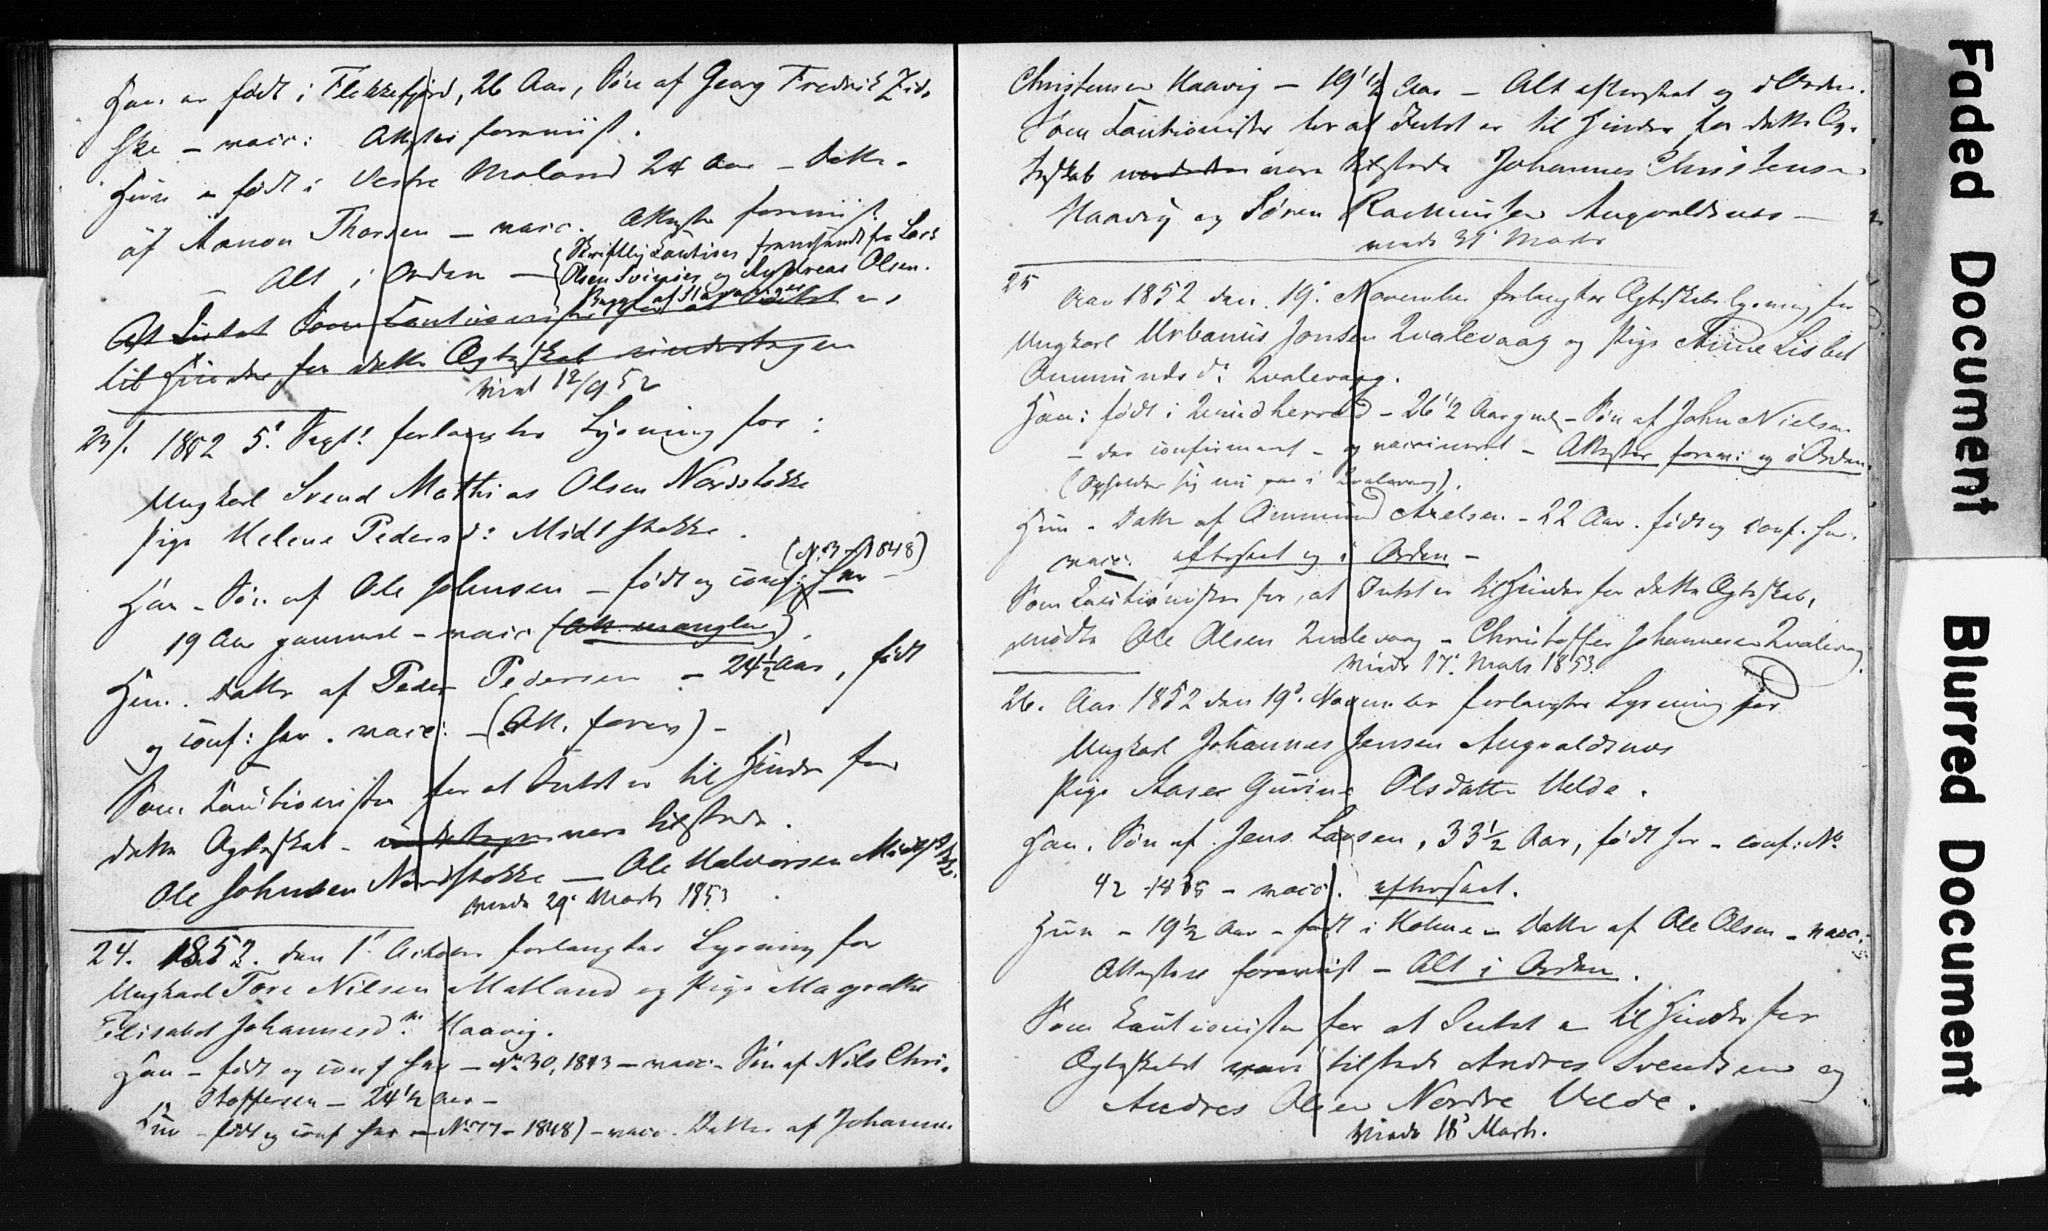 Han er født i Flekkefjord, 26 Aar, Søn af Georg Fredrik Zid.
ske – vacc: Attester foreviist.
Hun er født i Vestre Moland 24 Aar – Datter
af Aanon Thorsen – vacc. Attester foreviist.
Alt i Orden –
Skriftlig Caution fremsendt fra Lars
Olsen Svines og Andreas Olsen.
Bygge af Stavanger
At Intet Som Cautionister for at Intet er
til Hinder for dette Ægteskab undertegnen
Viet 12/9 52
23/. 1852 5' Sept! forlangtes Lysning for:
Ungkarl Svend Mathias Olsen Nordstokke
Pige Helene Pedersd: Midtstokke.
(No. 3 – 1848)
Han – Søn af Ole Johnsen – født og conf: her –
19 Aar gammel – vacc. (Att. mangler).
Hun. Datter af Peder Pedersen – 24½ Aar, født
og conf: her. vacc: – (Att. forev.) –
Som Cautionister for at Intet er til Hinder for
dette Ægteskab – undertegn vare tilstede.
Ole Johnsen Nordstokke – Ole Halvorsen Midtstokke.
Viede 29' Marts 1853
24. 1852. den 1' October forlangtes Lysning for
Ungkarl Tore Nilsen Matland og Pige Magrethe
Elisabet Johannesdr: Haavig.
Han – født og conf her – No 30, 1843 – vacc. Søn af Nils Chri-
stoffersen – 24½ Aar –
Hun – født og conf her – No 17 – 1848) – vacc. Datter af Johannes
Christensen Haavig – 19½ Aar – Alt efterseet og i Orden.
Som Cautionister for at Intet er til Hinder for dette Æg-
teskab vare tilstede Johannes Christensen
Haavig og Søren Rasmussen Augvaldsnes –
viede 31' Marts
25
Aar 1852 den 19' November forlangtes Ægteskabslysning for
Ungkarl Urbanus Jonsen Qvalevaag og Pige Anne Lisbet
Ommundsd: Qvalevaag.
Han: født i Qvindherred – 26½ Aar gml – Søn af John Nielsen
– der confirmeret – og vaccineret – Attester forevi: og i Orden.
(Opholder sig nu her i Qvalevaag).
Hun – Datter af Ommund Axelsen – 22 Aar. født og conf. her.
vacc: efterseet og i Orden –
Som Cautionister for, at Intet er til Hinder for dette Ægteskab,
mødte Ole Olsen Qvalevaag – Christoffer Johannesen Qvalevaag.
Viede 17' Marts 1853.
26. Aar 1852 den 19' November forlangtes Lysning for
Ungkarl Johannes Jensen Augvaldsnes
Pige Aaser Gurine Olsdatter Velde.
Han. Søn af Jens Larsen, 33½ Aar, født her – conf: No
42 – 1835 – vacc. efterseet.
Hun – 19½ Aar – født i Holme – Datter af Ole Olsen – vacc:
Attester foreviist – Alt i Orden.
Som Cautionister for at Intet er til Hinder for
Ægteskabet vare tilstede Andres Svendsen og
Andres Olsen Nordre Velde.
Viede 18' Marts.
Faded Document
Blurred Document